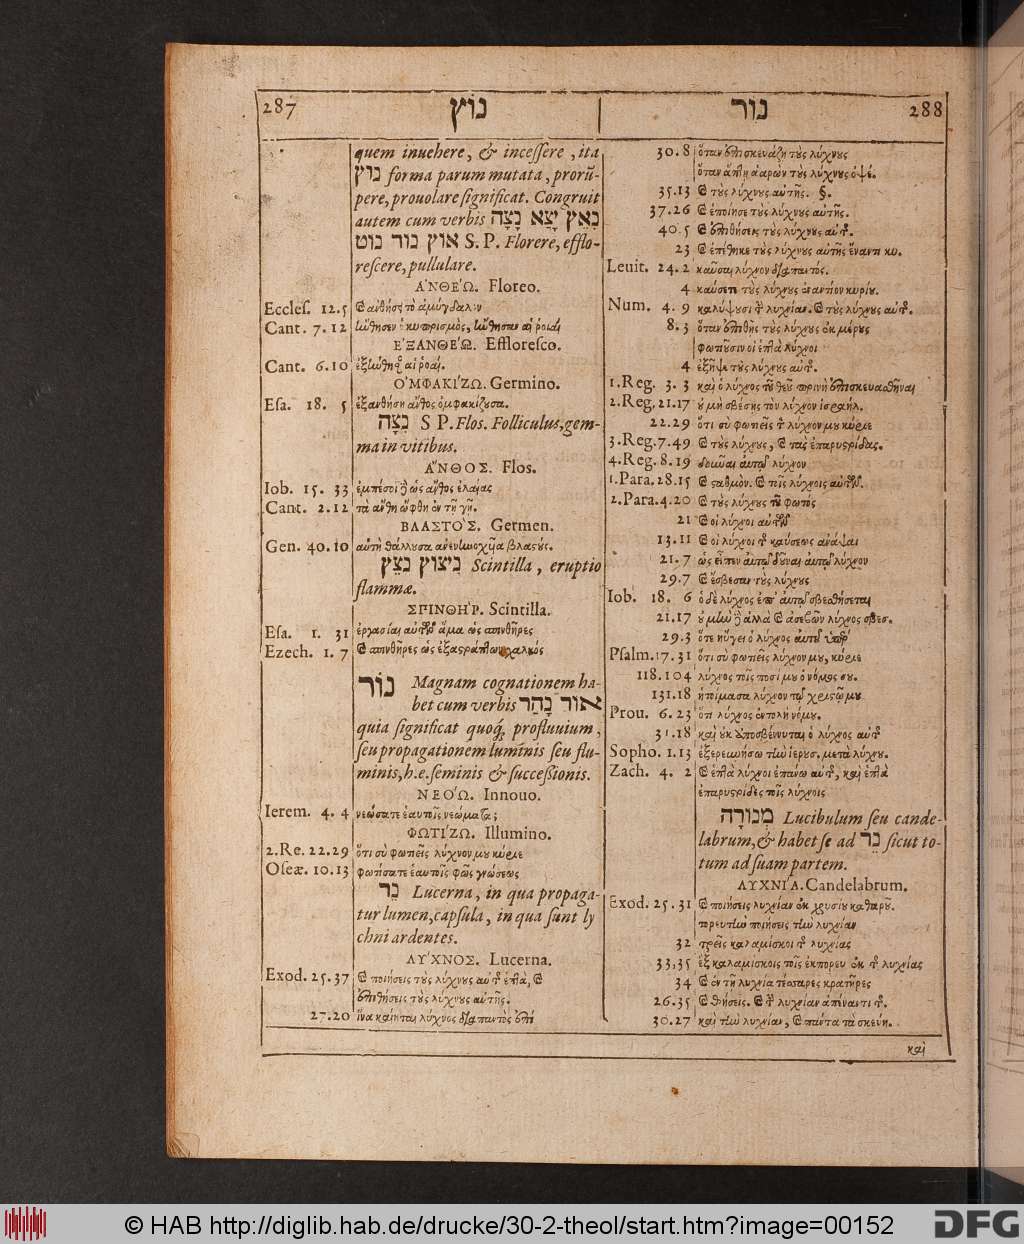 287 נוץ נור 288
quem inuehere, & incessere, ita
נוץ forma parum mutata, prorū-
pere, prouolare significat. Congruit
autem cum verbis נָאַץ יָצָא נָצָה
אוץ נור נוט S. P. Florere, efflo-
rescere, pullulare.
ἈΝΘΕΏ. Floreo.
Eccles. 12.5 & ἀνθήσῃ τὸ ἀμύγδαλον
Cant. 7.12 ἤνθησεν ὁ κυπρισμὸς, ἤνθησαν αἱ ῥοιαί
ἘΞΑΝΘΕΏ. Effloresco.
Cant. 6.10 ἐξήνθησαν αἱ ῥοαί.
ὈΜΦΑΚΊΖΩ. Germino.
Esa. 18. 5 ἐξανθήσῃ ἄνθος ὀμφακίζουσα.
נִצָּה S P. Flos. Folliculus, gem-
ma in vitibus.
ἌΝΘΟΣ. Flos.
Iob. 15. 33 ἐκπέσοι ὡς ἄνθος ἐλαίας
Cant. 2.12 τὰ ἄνθη ὤφθη ἐν τῇ γῇ.
ΒΛΑΣΤΌΣ. Germen.
Gen. 40.10 αὐτὴ θάλλουσα ἀνενηνοχῆα βλαστούς.
נִיצוֹץ נֹצֵץ Scintilla, eruptio
flammæ.
ΣΠΙΝΘΉΡ. Scintilla.
Esa. 1. 31 ἐργασίαι αὐτῶν ἅμα ὡς σπινθῆρες
Ezech. 1. 7 & σπινθῆρες ὡς ἐξαστράπτων χαλκός
נוֹר Magnam cognationem ha-
bet cum verbis אור נָהַר
quia significat quoq; profluuium,
seu propagationem luminis seu flu-
minis, h.e. seminis & successionis.
ΝΕΌΩ. Innouo.
Ierem. 4. 4 νεώσατε ἑαυτοῖς νεώματα;
ΦΩΤΊΖΩ. Illumino.
2.Re. 22.29 ὅτι σὺ φωτιεῖς λύχνον μου κύριε
Oseæ. 10.13 φωτίσατε ἑαυτοῖς φῶς γνώσεως
נֵר Lucerna, in qua propaga-
tur lumen, capsula, in qua sunt ly
chni ardentes.
ΛΎΧΝΟΣ. Lucerna.
Exod. 25.37 & ποιήσεις τοὺς λύχνους αὐτῆς ἑπτὰ, &
ἐπιθήσεις τοὺς λύχνους αὐτῆς.
27.20 ἵνα καίηται λύχνος διαπαντὸς ἐπί
30.8 ὅταν ἐπισκευάζῃ τοὺς λύχνους
ὅταν ἅπτῃ ἀαρὼν τοὺς λύχνους ὀψέ.
35.13 & τοὺς λύχνους αὐτῆς. §.
37.26 & ἐποίησε τοὺς λύχνους αὐτῆς.
40.5 & ἐπιθήσεις τοὺς λύχνους αὐτῆς.
23 & ἐπέθηκε τοὺς λύχνους αὐτῆς ἔναντι κυ.
Leuit. 24.2 καῦσαι λύχνον διαπαντός.
4 καύσετε τοὺς λύχνους ἐναντίον κυρίου.
Num. 4. 9 καλύψουσι τὴν λυχνίαν. & τοὺς λύχνους αὐτῆς.
8.3 ὅταν ἐπιθῇς τοὺς λύχνους ἐκ μέρους
φωτιοῦσιν οἱ ἑπτὰ λύχνοι
4 ἐξῆψε τοὺς λύχνους αὐτῆς.
1.Reg. 3. 3 καὶ ὁ λύχνος τοῦ θεοῦ πρινὴ ἐπισκευασθῆναι
2.Reg. 21.17 οὐ μὴ σβέσῃς τὸν λύχνον ἰσραήλ.
22.29 ὅτι σὺ φωτιεῖς τὸν λύχνον μου κύριε
3.Reg. 7.49 & τοὺς λύχνους, & τὰς ἐπαρυστρίδας.
4.Reg. 8.19 δοῦναι αὐτῷ λύχνον
1.Para. 28.15 & σταθμὸν. & τοῖς λύχνοις αὐτῶν.
2.Para. 4.20 & τοὺς λύχνους τοῦ φωτός
21 & οἱ λύχνοι αὐτῶν
13.11 & οἱ λύχνοι τῆς καύσεως ἀνάψαι
21.7 ὡς εἶπεν αὐτῷ δοῦναι αὐτῷ λύχνον
29.7 & ἔσβεσαν τοὺς λύχνους
Iob. 18. 6 ὁ δὲ λύχνος ἐπ' αὐτῷ σβεσθήσεται
21.17 οὐ μὴν ἀλλὰ & ἀσεβῶν λύχνος σβεσ.
29.3 ὅτε ηὔγει ὁ λύχνος αὐτοῦ ὑπὲρ
Psalm. 17.31 ὅτι σὺ φωτιεῖς λύχνον μου, κύριε
118.104 λύχνος τοῖς ποσί μου ὁ νόμος σου.
131.18 ἡτοίμασα λύχνον τῷ χριστῷ μου
Prou. 6.23 ὅτι λύχνος ἐντολὴ νόμου.
31.18 καὶ οὐκ ἀποσβέννυται ὁ λύχνος αὐτῆς
Sopho. 1.13 ἐξερευνήσω τὴν ἱερουσ. μετὰ λύχνου.
Zach. 4. 2 & ἑπτὰ λύχνοι ἐπάνω αὐτῆς, καὶ ἑπτὰ
ἐπαρυστρίδες τοῖς λύχνοις
מְנוֹרָה Lucibulum seu cande-
labrum, & habet se ad נֵר sicut to-
tum ad suam partem.
ΛΥΧΝΊΑ. Candelabrum.
Exod. 25.31 & ποιήσεις λυχνίαν ἐκ χρυσίου καθαροῦ.
τορευτὴν ποιήσεις τὴν λυχνίαν
32 τρεῖς καλαμίσκοι τῆς λυχνίας
33.35 ἓξ καλαμίσκοις τοῖς ἐκπορευ ἐκ τῆς λυχνίας
34 & ἐν τῇ λυχνίᾳ τέσσαρες κρατῆρες
26.35 & θήσεις. & τὴν λυχνίαν ἀπέναντι τῆς.
30.27 καὶ τὴν λυχνίαν, & πάντα τὰ σκεύη.
καὶ
© HAB http://diglib.hab.de/drucke/30-2-theol/start.htm?image=00152 DFG